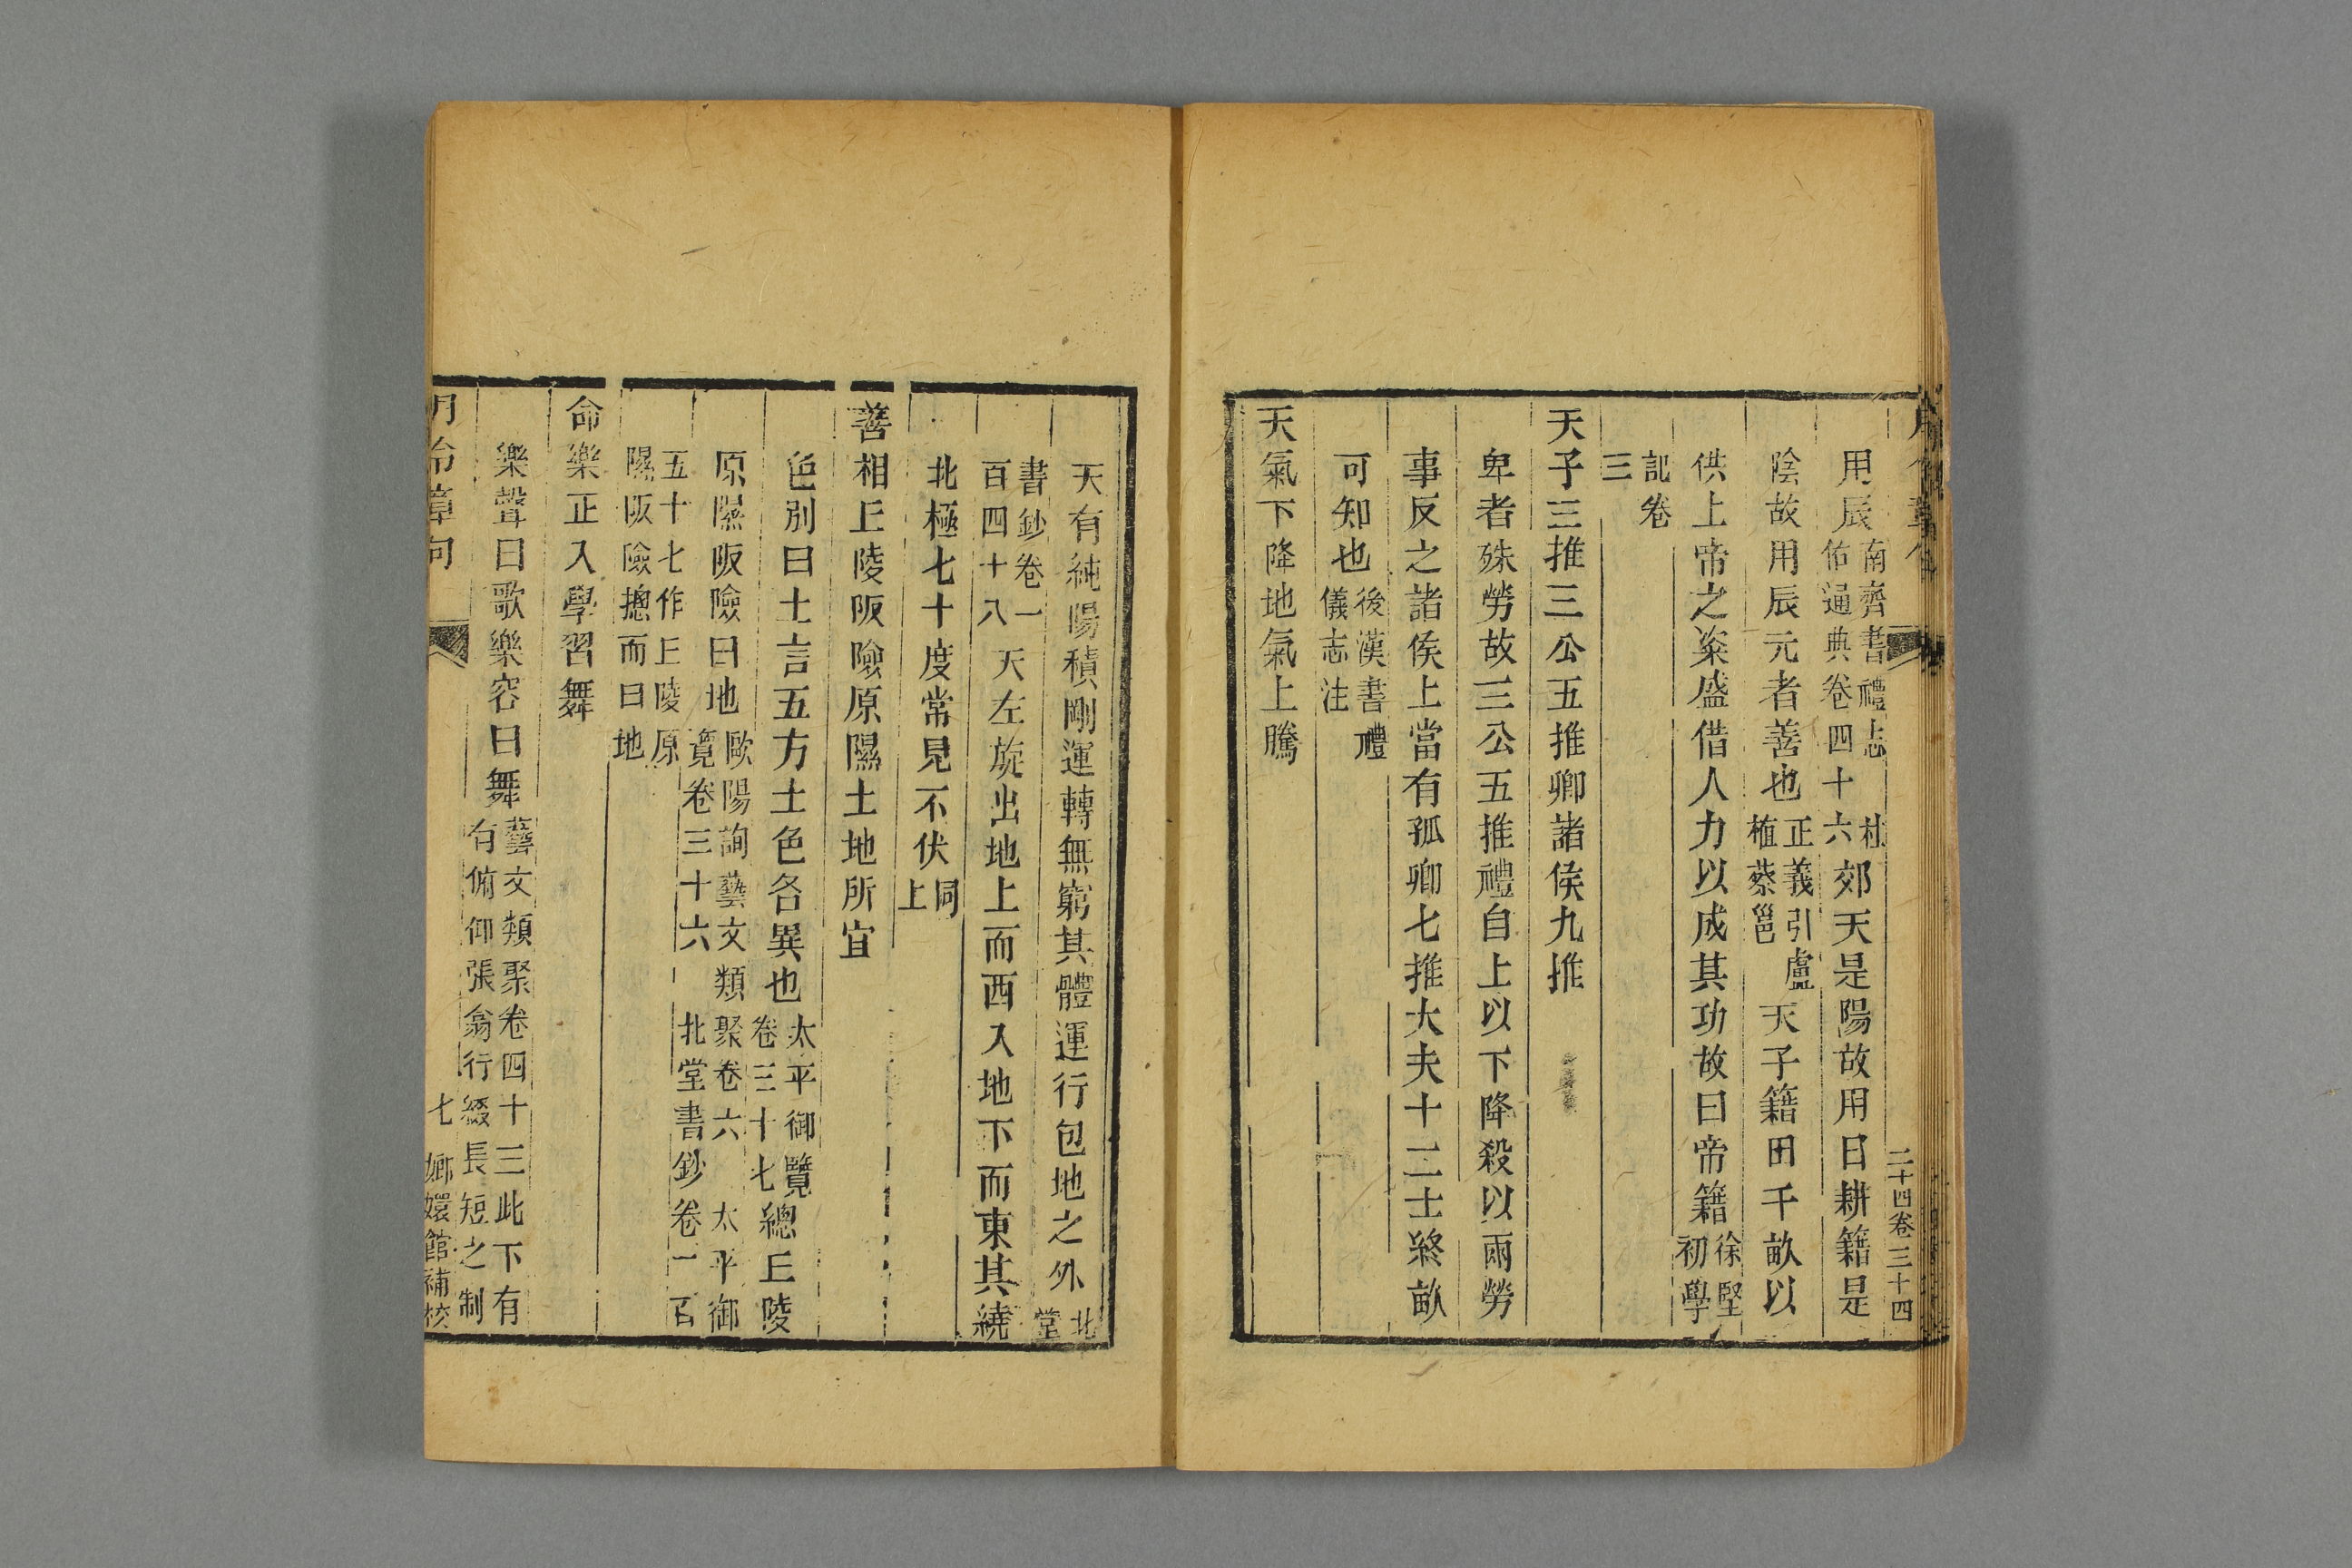 月令章句
二十四卷三十四
用辰南齊書禮志杜佑通典卷四十六郊天是陽故用日耕籍是
陰故用辰元者善也正義引盧植蔡邕天子籍田千畝以
供上帝之粢盛借人力以成其功故曰帝籍徐堅初學
記卷三
天子三推三公五推卿諸侯九推
卑者殊勞故三公五推禮自上以下降殺以兩勞
事反之諸侯上當有孤卿七推大夫十二士終畝
可知也後漢書禮儀志注
天氣下降地氣上騰
天有純陽積剛運轉無窮其體運行包地之外北堂
書鈔卷一百四十八天左旋出地上而西入地下而東其繞
北極七十度常見不伏同上
善相丘陵阪險原隰土地所宜
色別曰土言五方土色各異也太平御覽卷三十七總丘陵
原隰阪險曰地歐陽詢藝文類聚卷六太平御覽卷三十六北堂書鈔卷一百
五十七作丘陵原隰阪險摠而曰地
命樂正入學習舞
樂聲曰歌樂容曰舞藝文類聚卷四十三此下有有俯仰張翕行綴長短之制
月令章句
七
嫏嬛館補校